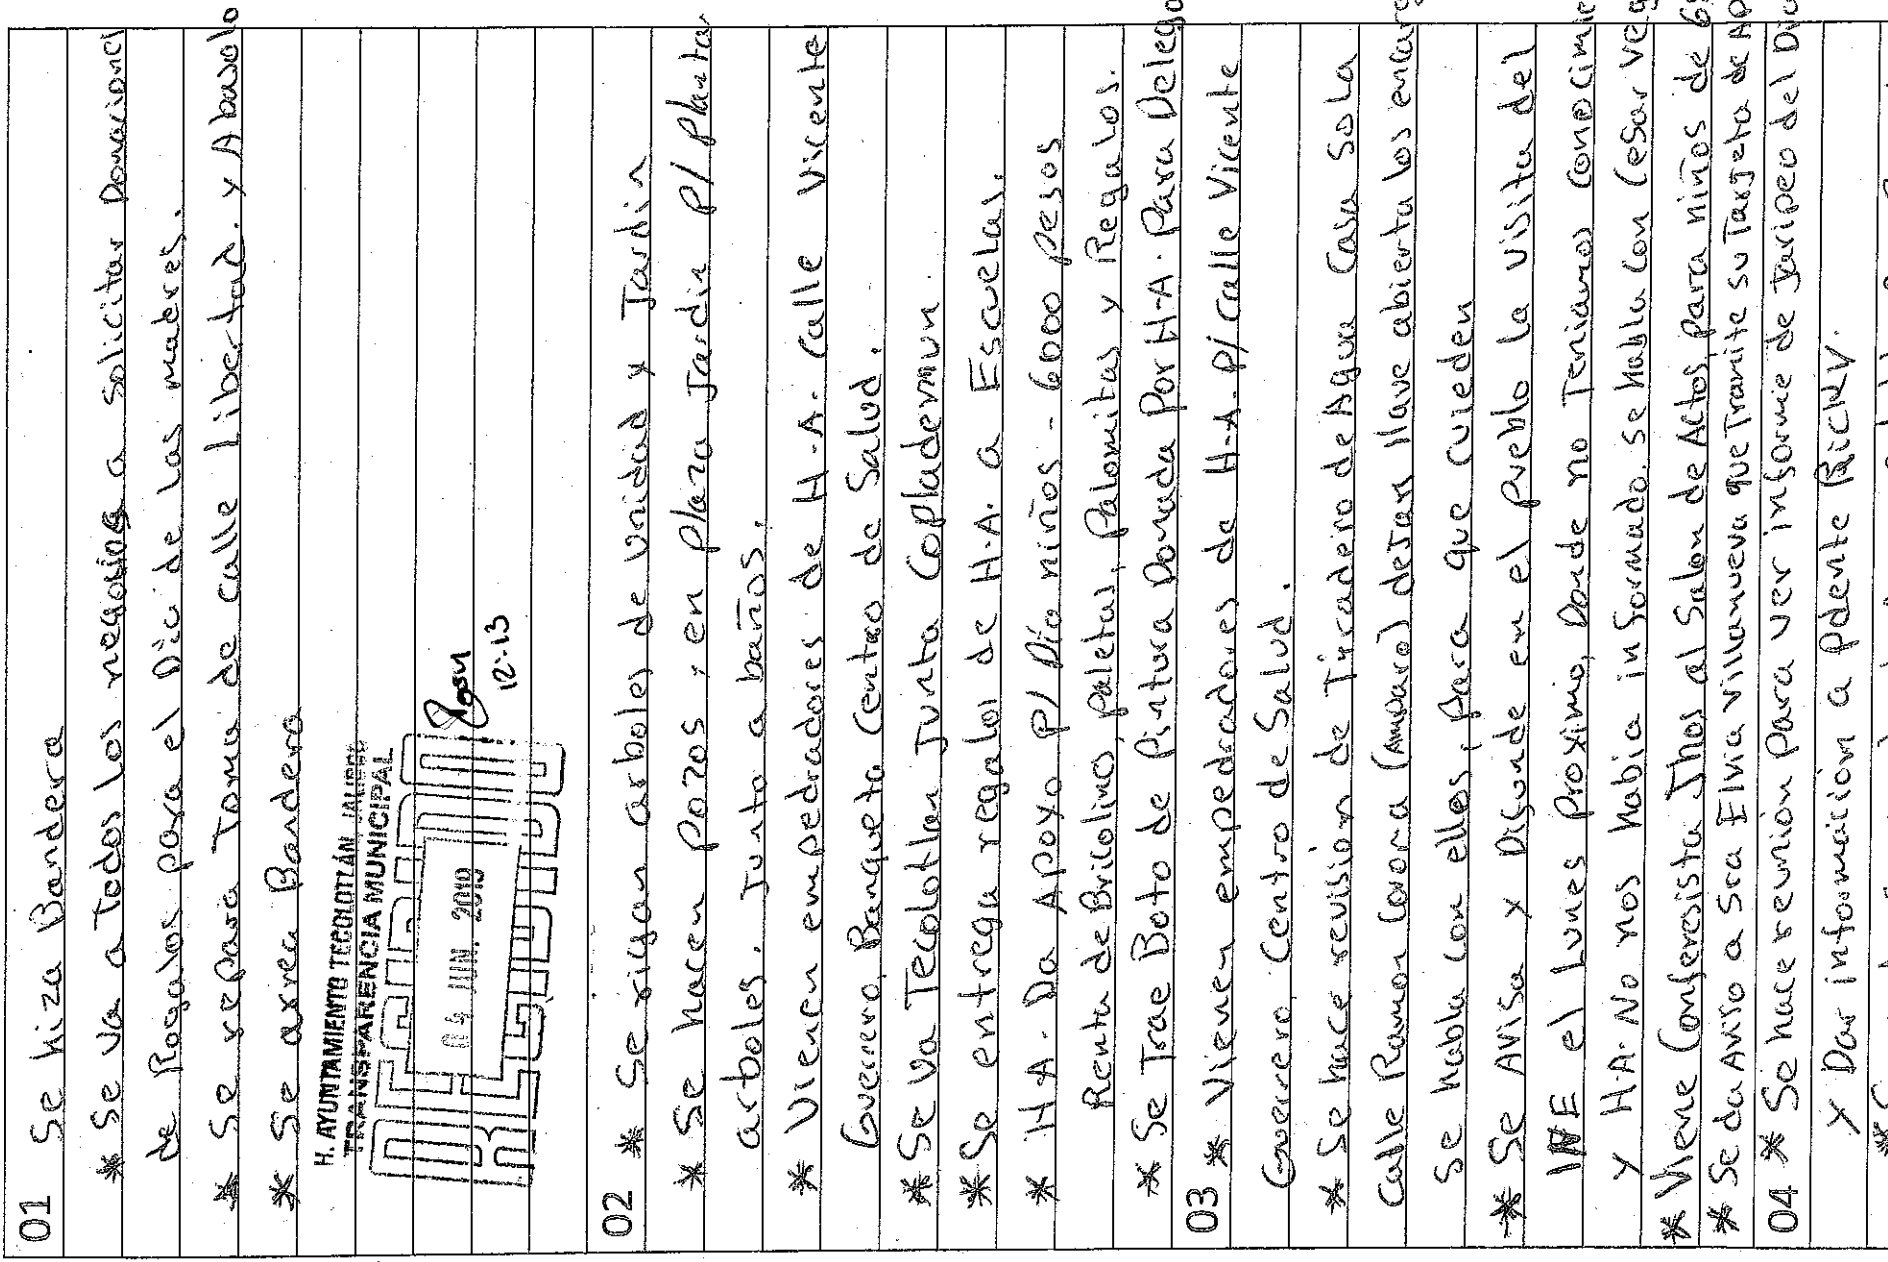 01 Se hiza Bandera
* Se va a Todos los negosios a Solicitar Donacione
de Regalos para el Dia de Las madres.
* Se repara Toma de calle Libertad. y Abasolo
* Se arrea Bandera
H. AYUNTAMIENTO TECOLOTLÁN JALISCO
TRANSPARENCIA MUNICIPAL
04 JUN. 2019
RECIBIDO
12:13
02 * Se rigan arboles de unidad y Jardin
* Se hacen Pozos, en Plaza Jardin P/ Plantar
arboles. Junto a baños.
* Vienen empedradores de H.A. Calle Vicente
Guerrero, Banqueta Centro de Salud.
* Se va Tecolotlan Junta Coplademun.
* Se entrega regalos de H.A. a Escuelas.
* H.A. Da Apoyo P/ Día niños - 6000 pesos
Renta de Bricolino, paletas, Palomitas y Regalos.
* Se Trae Bote de Pintura Donada Por H.A. Para Delega
03 * Vienen empedradores de H.A. P/ Calle Vicente
Guerrero, Centro de Salud.
* Se hace revisión de Tiradeiro de Agua Casa Sola
Calle Ramon Corona (Amaro) dejan llave abierta los encarg
Se habla con ellos, Para que cuieden
* Se Avisa y Difunde en el Pueblo La Visita del
INE el Lunes Proximo, Donde no Teniamos Conocimie
y H.A. No nos habia informado. Se habla con Cesar Veg
* Viene Conferesista Jnos al Salon de Actos, para niños de 6
* Se da Aviso a Sra Elvia Villanueva que Tramite su Targeta de AP
04 * Se hace reunion Para ver informe de Jaripeo del Dia
y Dar información a Pdente Ricky.